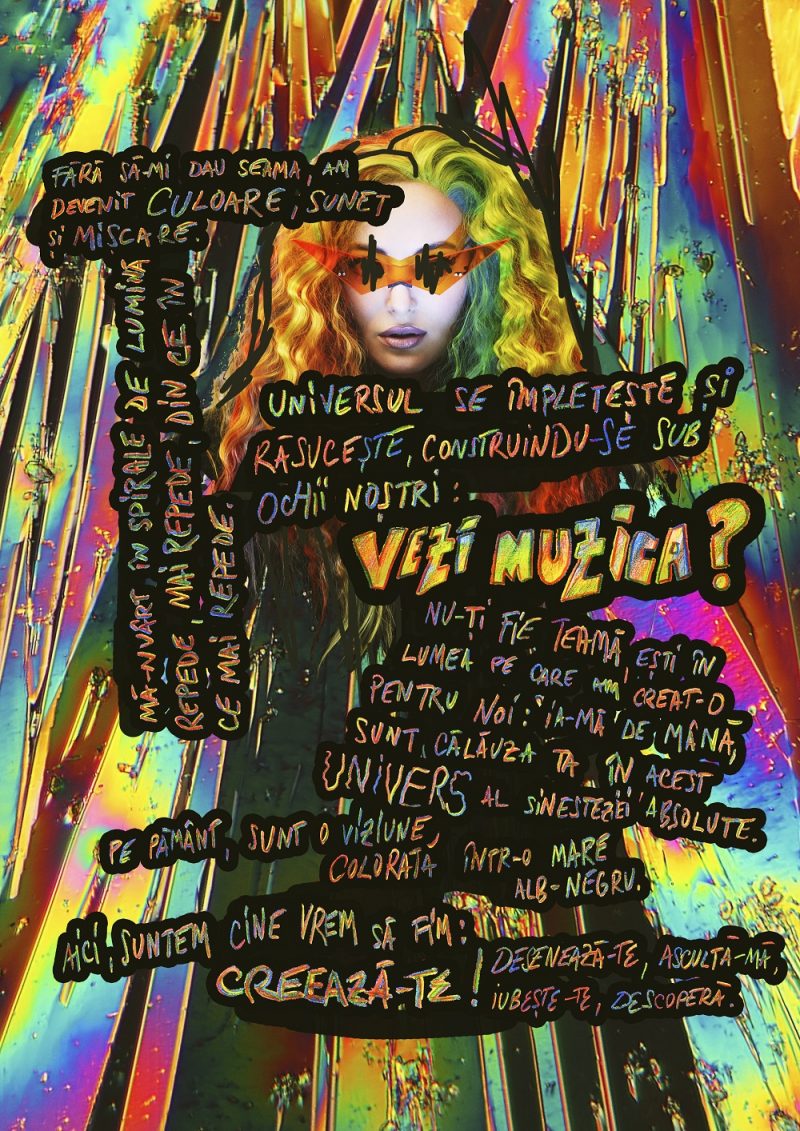 FĂRĂ SĂ-MI DAU SEAMA, AM
DEVENIT CULOARE, SUNET
ȘI MIȘCARE.
MĂ-NVÂRT, ÎN SPIRALE DE LUMINĂ
REPEDE, MAI REPEDE, DIN CE ÎN
CE MAI REPEDE.
UNIVERSUL SE ÎMPLETEȘTE ȘI
RĂSUCEȘTE, CONSTRUINDU-SE SUB
OCHII NOȘTRI:
VEZI MUZICA?
NU-ȚI FIE TEAMĂ, EȘTI ÎN
LUMEA PE CARE AM CREAT-O
PENTRU NOI: IA-MĂ DE MÂNĂ,
SUNT CĂLĂUZA TA ÎN ACEST
UNIVERS AL SINESTEZIEI ABSOLUTE.
PE PĂMÂNT, SUNT O VIZIUNE,
COLORATĂ ÎNTR-O MARE
ALB-NEGRU.
AICI, SUNTEM CINE VREM SĂ FIM:
CREEAZĂ-TE! DESENEAZĂ-TE, ASCULTĂ-MĂ,
IUBEȘTE-TE, DESCOPERĂ.